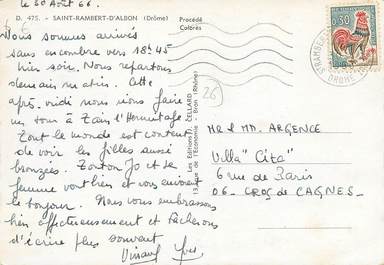 le 30 Août 66
D. 475. - SAINT-RAMBERT-D'ALBON (Drôme)
Procédé
Colorés
Nous sommes arrivés
sans encombre vers 18h45
hier soir. Nous repartons
demain matin. Cette
après-midi nous irons faire
un tour à Tain l'Hermitage
Tout le monde est content
de voir les filles aussi
bronzées. Tonton Jo et sa
femme vont bien et vous envoient
le bonjour. Nous vous embrassons
bien affectueusement et tâcherons
d'écrire plus souvent
Yves
Les Editions J. CELLARD
Bron (Rhône)
26
0,30
DROME
Mr et MD. ARGENCE
Villa "Cita"
6 rue de Paris
06 - CROS de CAGNES -